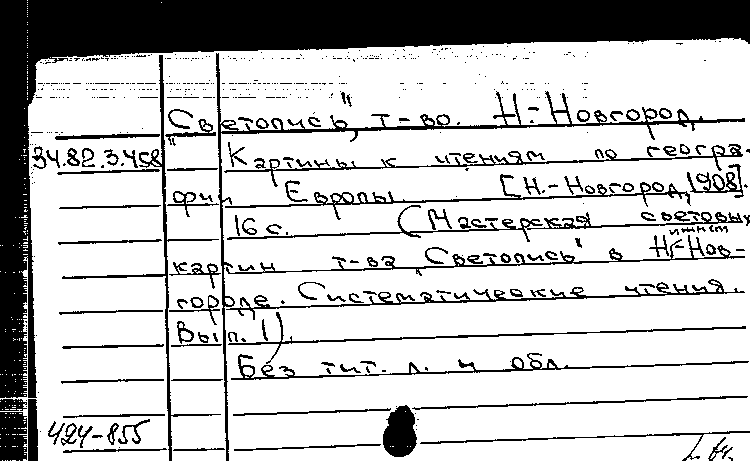 „Светопись", т-во. Н.-Новгород.
34.82.3.468 Картины к чтениям по геогра-
фии Европы. [Н.-Новгород, 1908].
16 с. (Мастерская световых
картин т-ва „Светопись" в Н.-Нов-
городе. Систематические чтения.
Вып. 1).
Без тит. л. и обл.
424-855